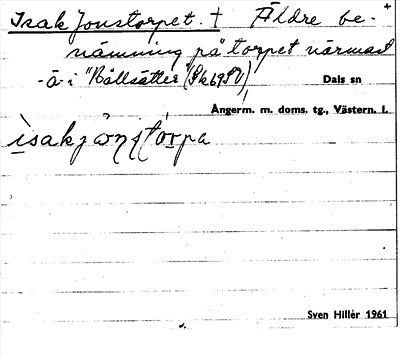 Isak Jonstorpet. † Äldre be-
nämning på torpet närmast
-ä- i "Bällsätter"
Dals sn
Ångerm. m. doms. tg., Västern. l.
Sven Hillér 1961